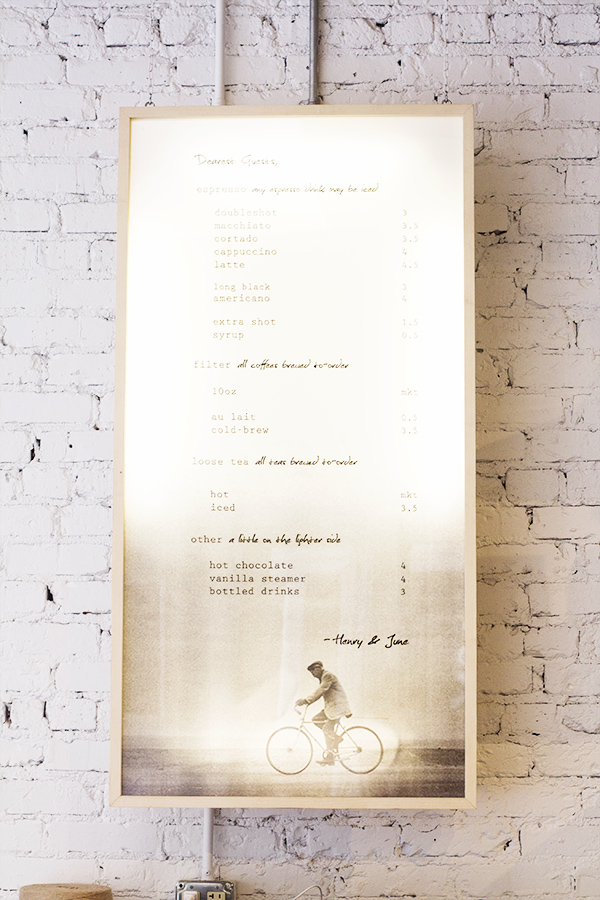 Dearest Guests,
espresso any espresso drink may be iced
doubleshot 3
macchiato 3.5
cortado 3.5
cappuccino 4
latte 4.5
long black 3
americano 4
extra shot 1.5
syrup 0.5
filter all coffees brewed to-order
10oz mkt
au lait 0.5
cold-brew 3.5
loose tea all teas brewed to-order
hot mkt
iced 3.5
other a little on the lighter side
hot chocolate 4
vanilla steamer 4
bottled drinks 3
- Henry & June